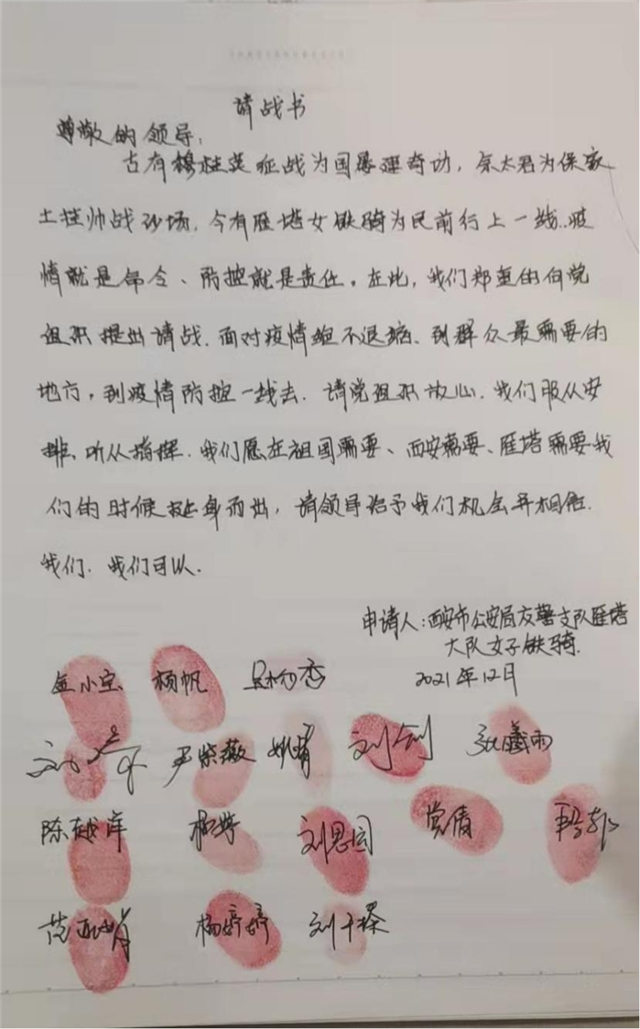 请战书
尊敬的领导：
古有穆桂英征战为国屡建奇功，佘太君为保家
土挂帅战沙场，今有雁塔女铁骑为民前行上一线，疫
情就是命令、防控就是责任。在此，我们郑重的向党
组织提出请战，面对疫情绝不退缩、到群众最需要的
地方，到疫情防控一线去，请党组织放心，我们服从安
排、听从指挥，我们愿在祖国需要、西安需要、雁塔需要我
们的时候挺身而出，请领导给予我们机会并相信
我们，我们可以．
申请人：西安市公安局交警支队雁塔
大队女子铁骑
2021年12月
杨帆
刘 严紫薇 刘钊 张曦雨
陈越岸 杨婷 刘思园 党倩
范 杨婷婷 刘